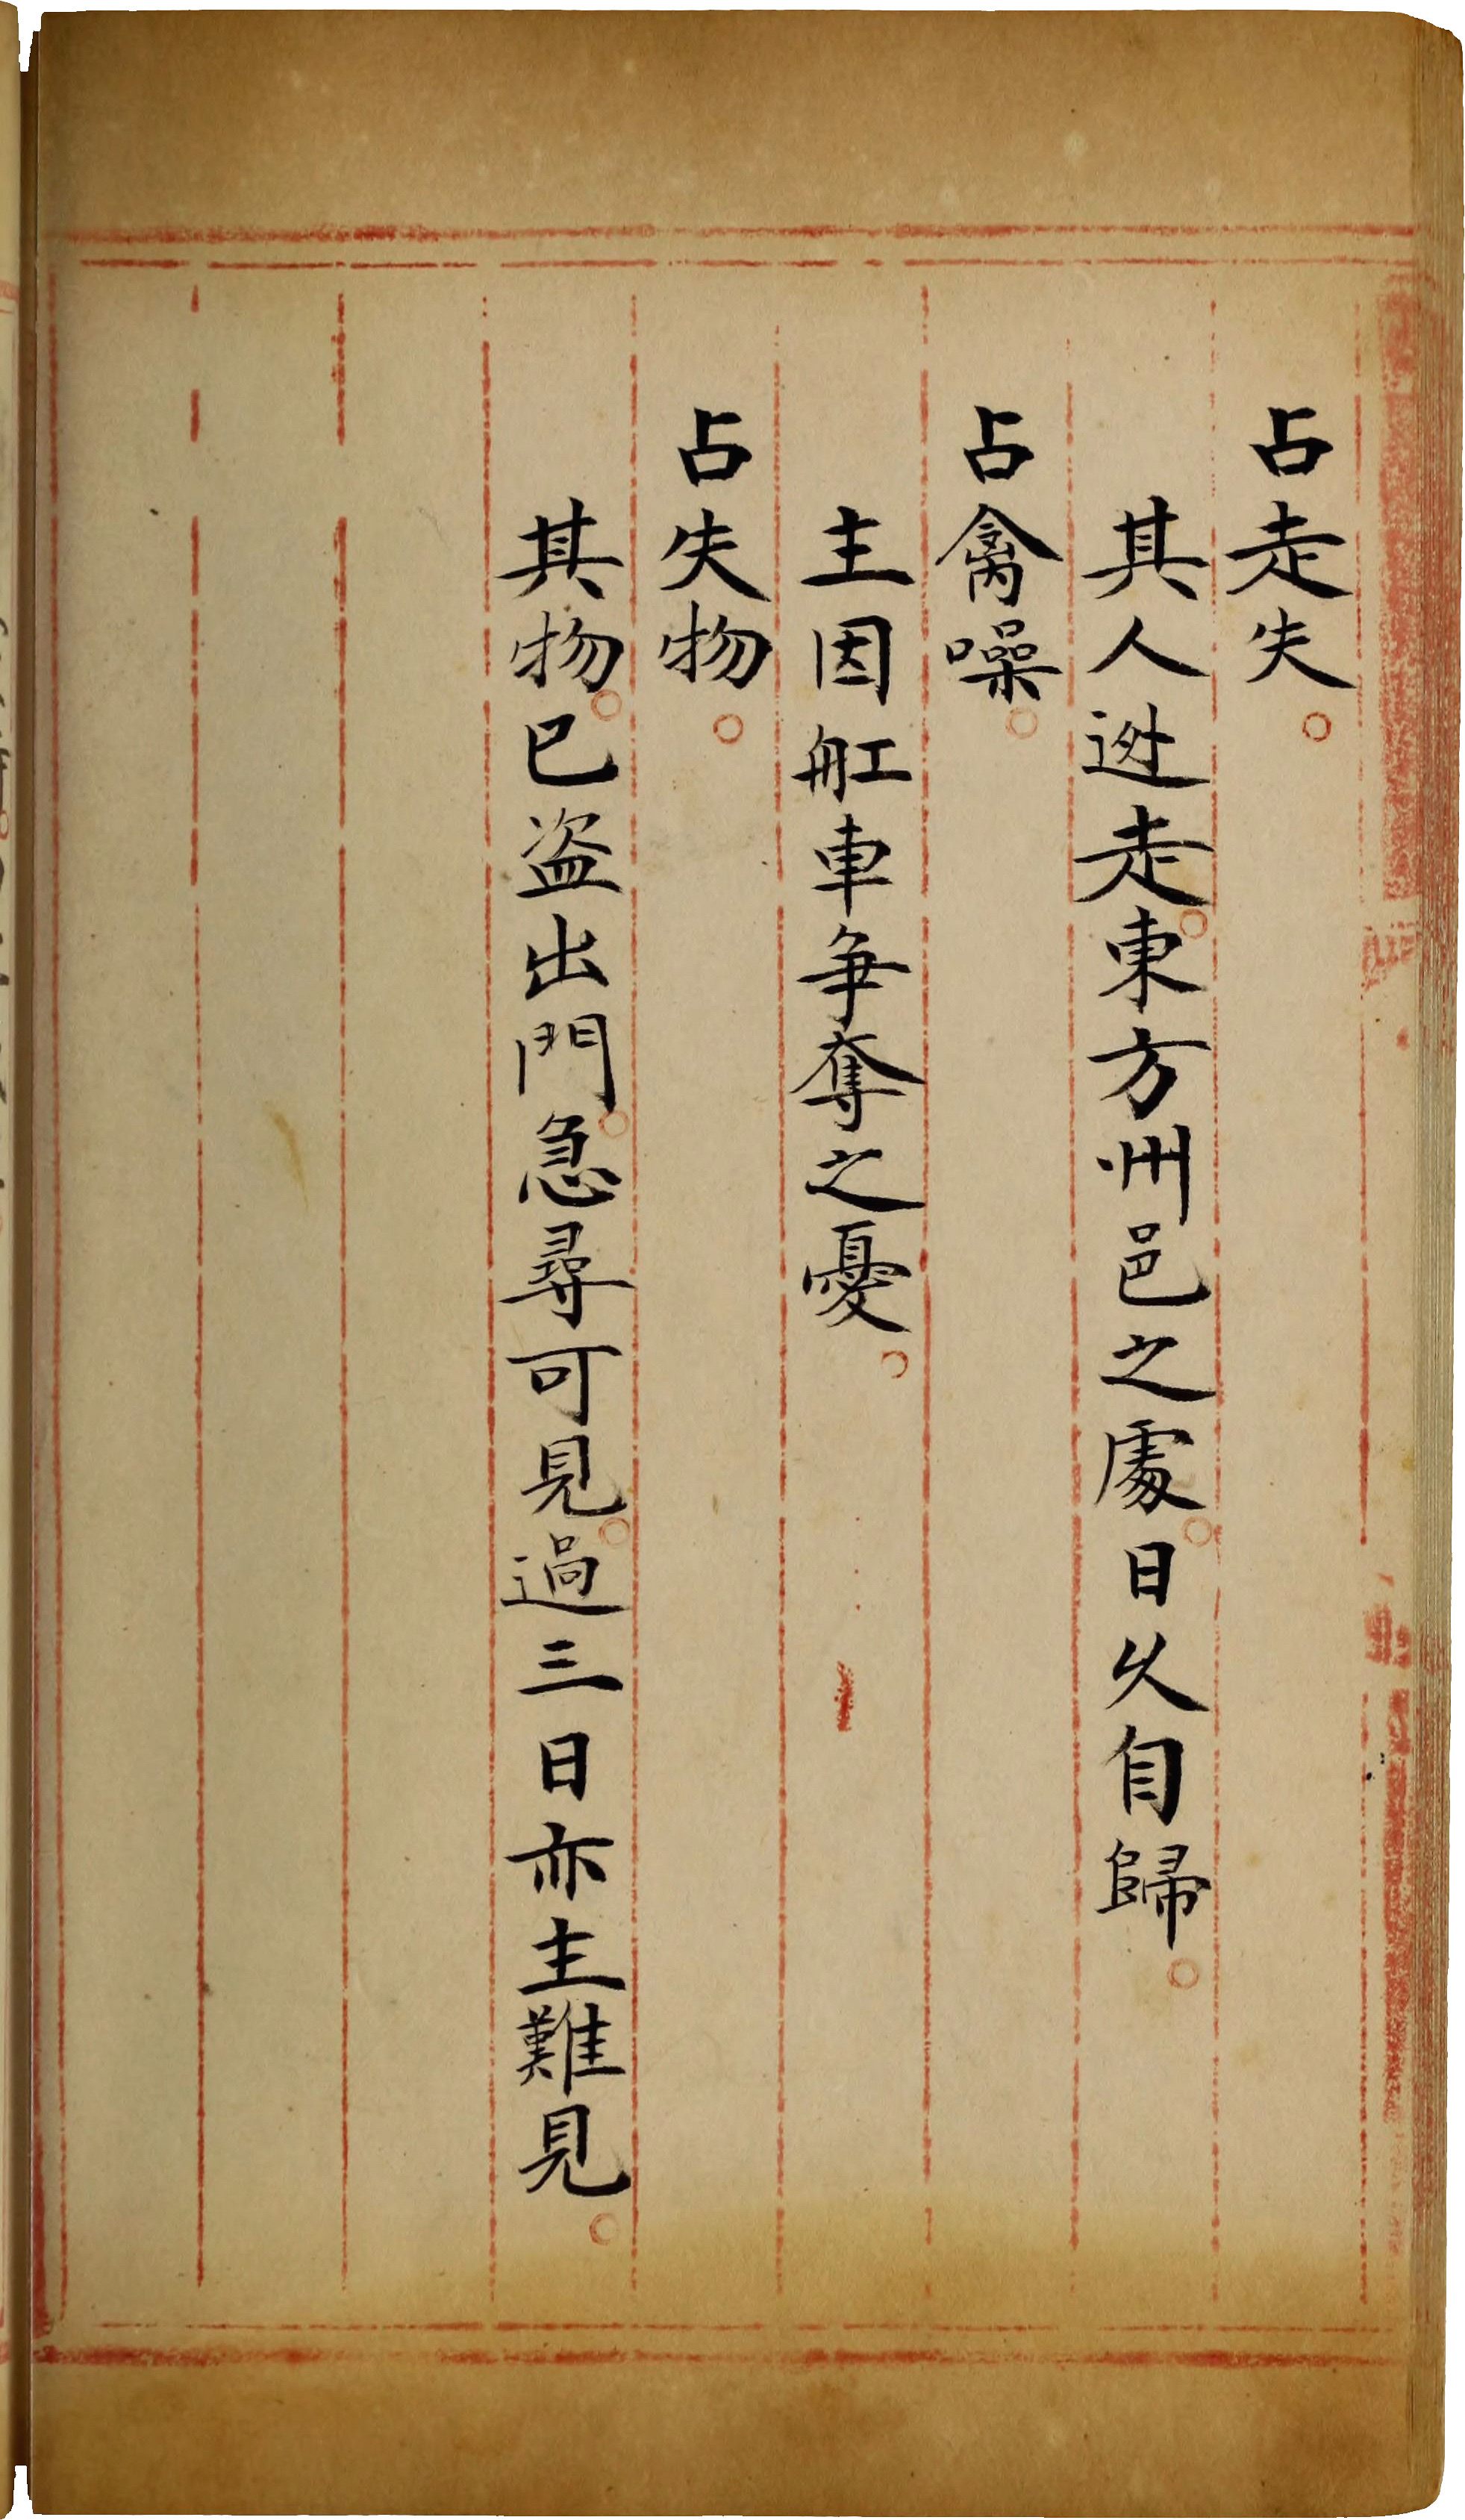 占走失。
其人迯走。東方州邑之處。日久自歸。
占禽噪。
主因舡車爭奪之憂。
占失物。
其物。已盜出門。急尋可見。過三日亦主難見。